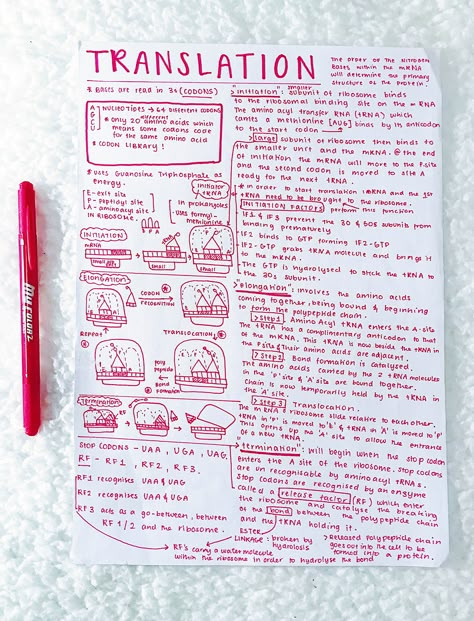 TRANSLATION
The order of the nitrogen
bases within the mRNA
will determine the primary
structure of the protein.
* BASES are read in 3s (CODONS)
A G C U
NUCLEOTIDES → 64 DIFFERENT CODONS
* only 20 different amino acids which
means some codons code
for the same amino acid
* CODON LIBRARY!
* uses Guanosine Triphosphate as
energy.
E - exit site
P - Peptidyl site
A - aminoacyl site
IN RIBOSOME.
E P A
initiator tRNA
in prokaryotes
uses formyl-
methionine
INITIATION
mRNA
small
small
small
ELONGATION
CODON
RECOGNITION
REPEAT
TRANSLOCATION
poly
peptide
Bond
formation
Termination
RF
STOP CODONS - UAA, UGA, UAG.
RF - RF1, RF2, RF3.
RF1 recognises UAA & UAG
RF2 recognises UAA & UGA
RF3 acts as a go-between, between
RF 1/2 and the ribosome.
RF's carry a water molecule
within the ribosome in order to hydrolyse the bond
> "initiation": smaller subunit of ribosome binds
to the ribosomal binding site on the mRNA
The amino acyl transfer RNA (tRNA) which
carries a methionine [AUG] binds by its anticodon
to the start codon
> Large subunit of ribosome then binds to
the smaller unit and the mRNA. @ the end
of initiation the mRNA will move to the P.site
and the second codon is moved to site A
ready for the next tRNA.
* in order to start translation mRNA and the 1st
tRNA need to be brought to the ribosome.
INITIATION FACTORS perform this function
IF1 & IF3 prevent the 30 & 60s subunit from
binding prematurely
IF2 binds to GTP forming IF2-GTP
IF2-GTP grabs tRNA molecule and brings it
to the mRNA.
The GTP is hydrolysed to stick the tRNA to
the 30s subunit.
> "elongation": involves the amino acids
coming together, being bound & beginning
to form the polypeptide chain.
> Step 1 Amino Acyl tRNA enters the A-site
The tRNA has a complimentary anticodon to that
of the mRNA. This tRNA is now beside the tRNA in
the P site & their amino acids are adjacent.
> Step 2. Bond formation is catalysed.
The amino acids carried by the 2 tRNA molecules
in the 'P' site & 'A' site are bound together.
Chain is now temporarily held by the tRNA in
the 'A' site.
> Step 3 Translocation.
The mRNA & ribosome slide relative to each other.
tRNA in 'P' is moved to 'E' & tRNA in 'A' is moved to 'P'
This opens up the 'A' site to allow the entrance
of a new tRNA.
> "termination": will begin when the stop codon
enters the A site of the ribosome. Stop codons
are un recognisable by aminoacyl tRNAs.
Stop codons are recognised by an enzyme
called a release factor (RF) which enter
the ribosome and catalyse the breaking
of the bond between the polypeptide chain
and the tRNA holding it.
ESTER
LINKAGE: broken by
hydrolosis
> Released polypeptide chain
goes out into the cell to be
formed into a protein.